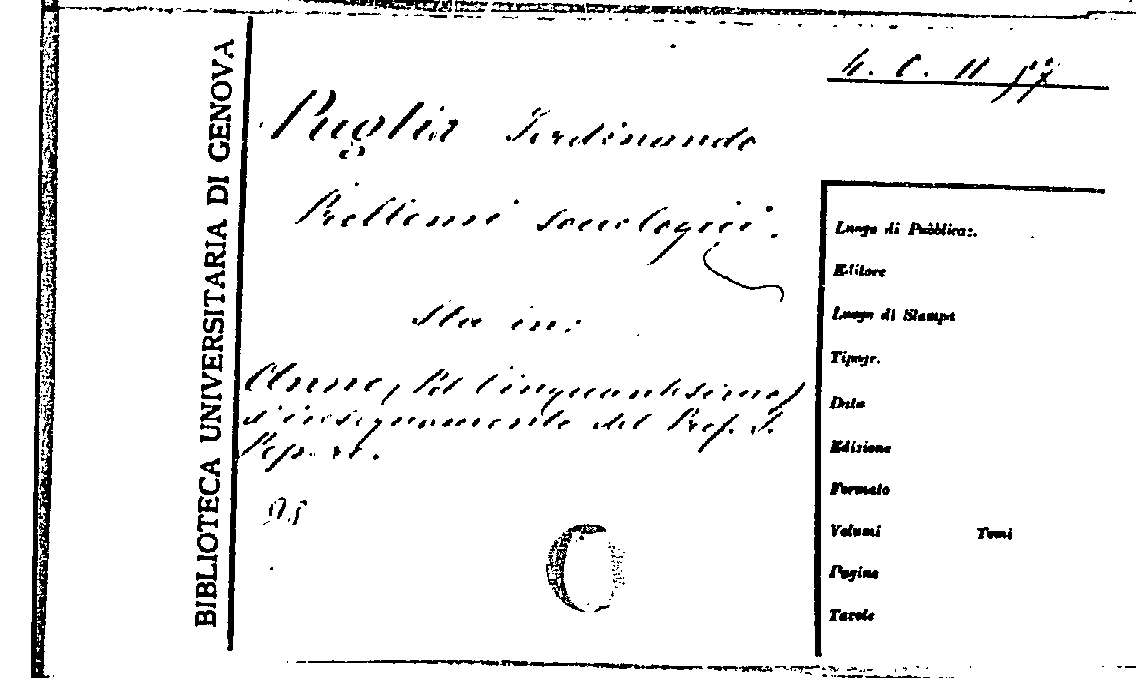 BIBLIOTECA UNIVERSITARIA DI GENOVA
4. C. II 57
Puglia Ferdinando
Problemi sociologici.
Sta in:
Anno, Pel Cinquantesimo,
d'insegnamento del Prof. F.
Pepere.
Luogo di Pubblicaz.
Editore
Luogo di Stampa
Tipogr.
Data
Edizione
Formato
Volumi Tomi
Pagine
Tavole